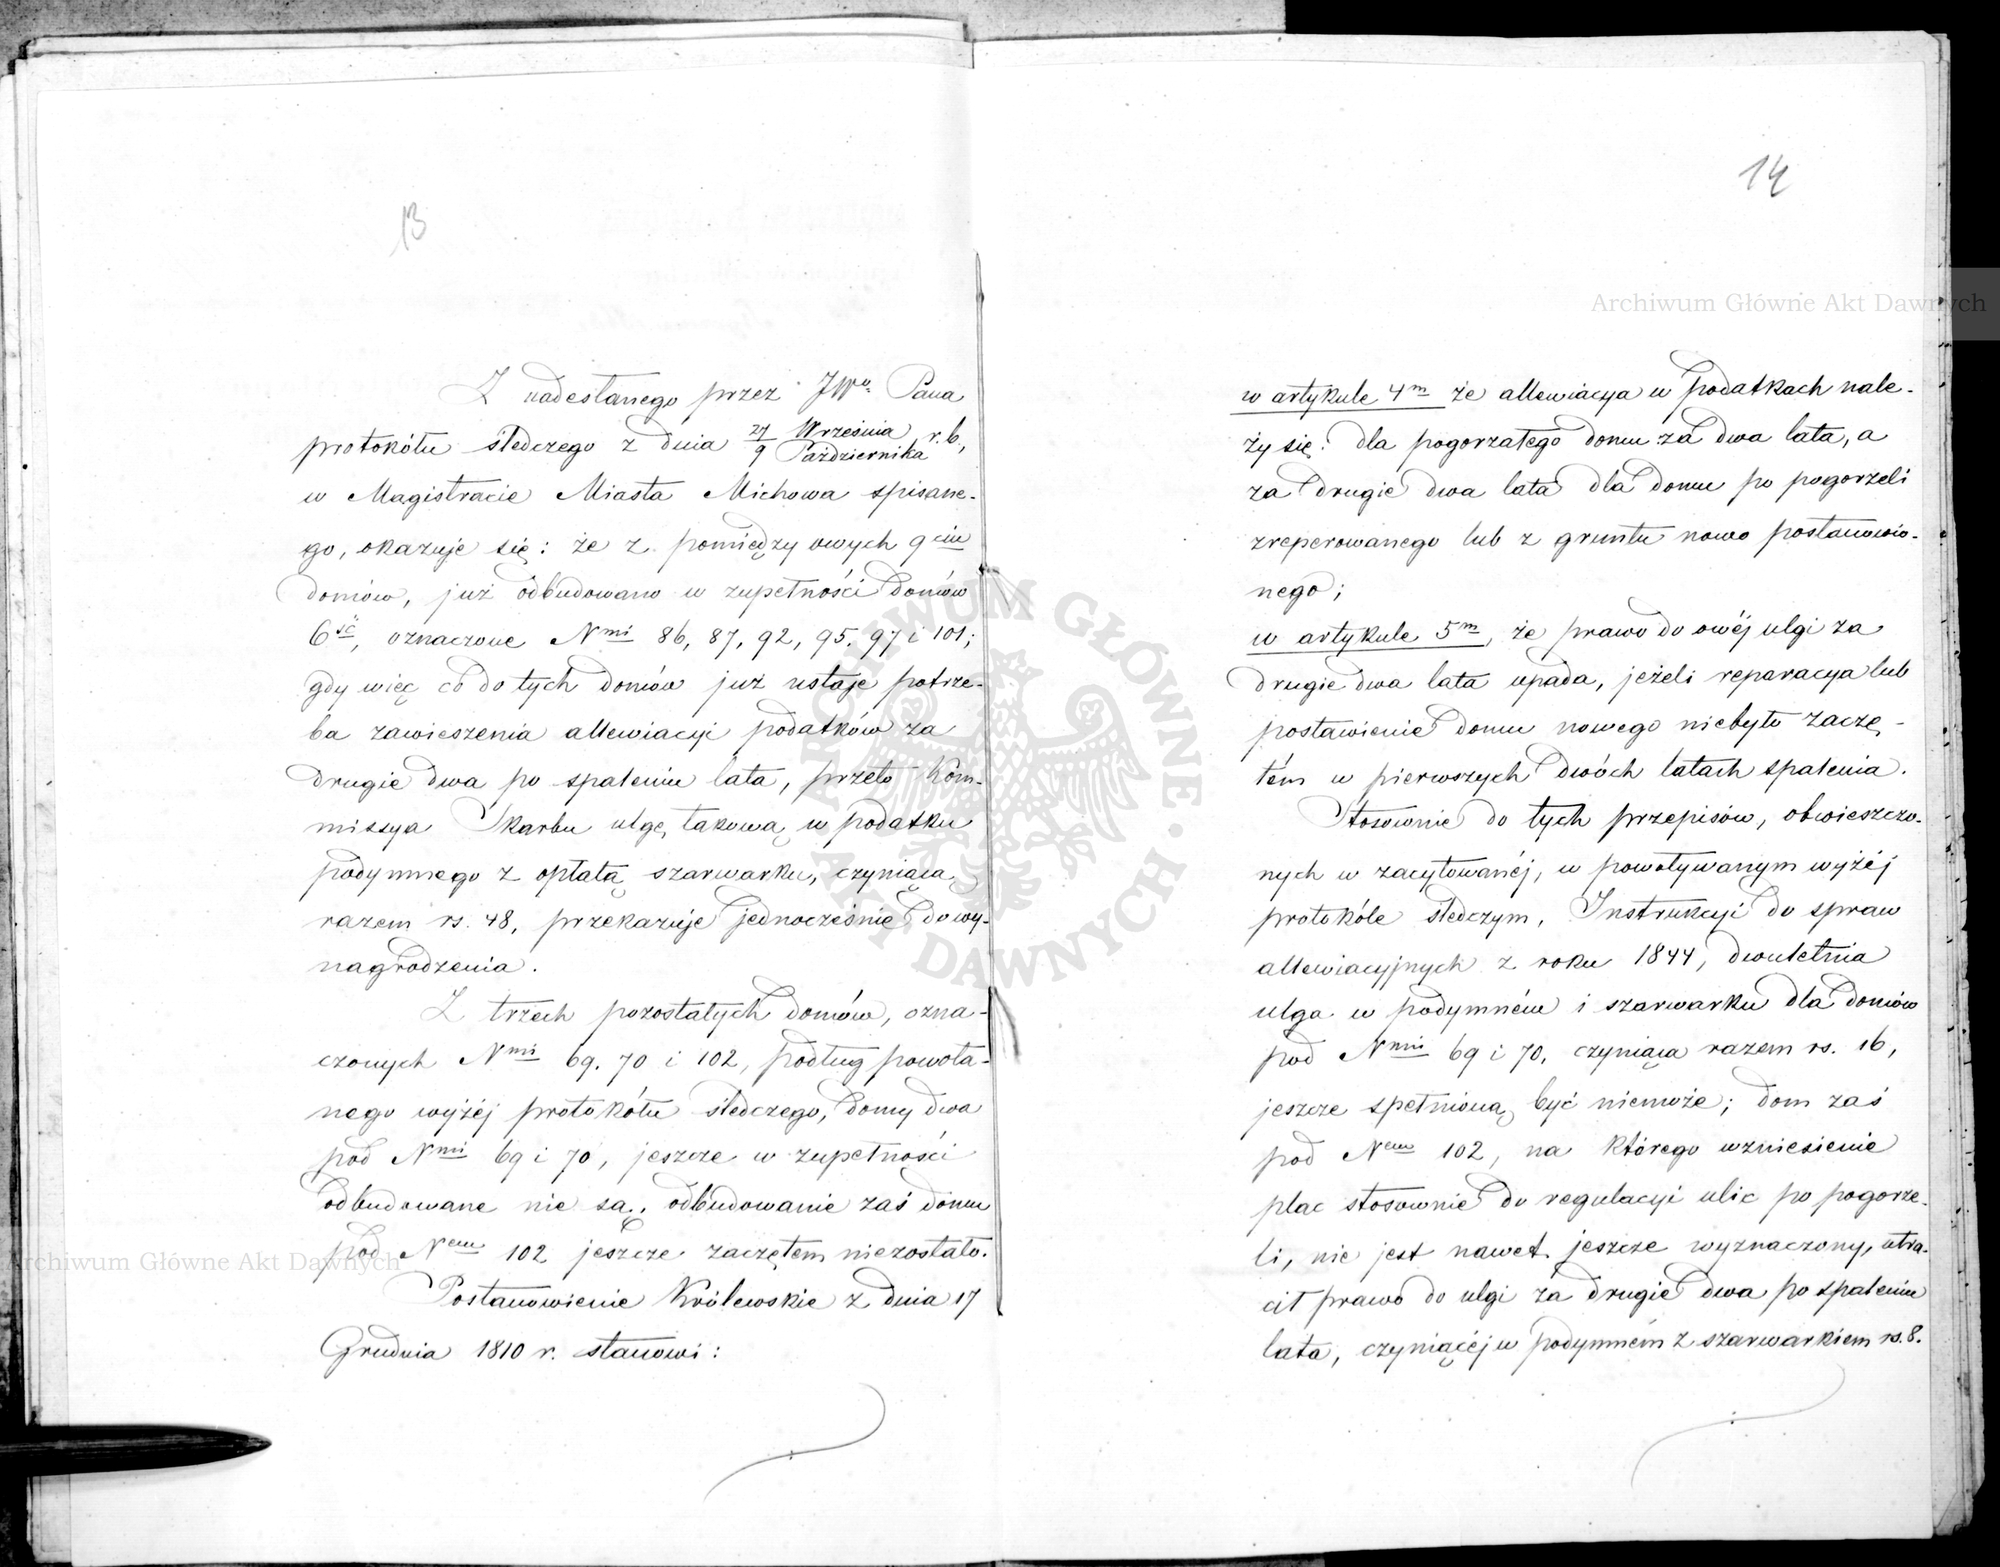 13
Z nadesłanego przez JWo. Pana
protokółu śledczego z dnia 27 Września / 9 Października r. b.,
w Magistracie Miasta Michowa spisane-
go, okazuje się: że z pomiędzy owych 9ciu
domów, już odbudowano w zupełności domów
6ść, oznaczone Nmi 86, 87, 92, 95, 97 i 101;
gdy więc co do tych domów już ustaje potrze-
ba zawieszenia allewiacyi podatków za
drugie dwa po spaleniu lata, przeto Kom-
missya Skarbu ulgę takową w podatku
podymnego z opłatą szarwarku, czyniącą
razem rs. 48, przekazuje jednocześnie do wy-
nagrodzenia.
Z trzech pozostałych domów, ozna-
czonych Nmi 69, 70 i 102, podług powoła-
nego wyżéj protokółu śledczego, domy dwa
pod Nmi 69 i 70, jeszcze w zupełności
odbudowane nie są, odbudowanie zaś domu
pod Nem 102 jeszcze zaczętem niezostało.
Postanowienie Królewskie z dnia 17
Grudnia 1810 r. stanowi:
14
w artykule 4m że allewiacya w podatkach nale-
ży się: dla pogorzałego domu za dwa lata, a
za drugie dwa lata dla domu po pogorzeli
zreperowanego lub z gruntu nowo postanowio-
nego;
w artykule 5m, że prawo do owéj ulgi za
drugie dwa lata upada, jeżeli reparacya lub
postawienie domu nowego niebyło zaczę-
tém w pierwszych dwóch latach spalenia.
Stosownie do tych przepisów, obwieszczo-
nych w zacytowanéj, w powoływanym wyżéj
protokóle śledczym, Instrukcyi do spraw
allewiacyjnych z roku 1844, dwuletnia
ulga w podymném i szarwarku dla domów
pod Nmi 69 i 70, czyniąca razem rs. 16,
jeszcze spełnioną być niemoże; dom zaś
pod Nem 102, na którego wzniesienie
plac stosownie do regulacyi ulic po pogorze-
li, nie jest nawet jeszcze wyznaczony, utra-
cił prawo do ulgi za drugie dwa po spaleniu
lata, czyniącéj w podymném z szarwarkiem rs. 8.
Archiwum Główne Akt Dawnych
Archiwum Główne Akt Dawnych
ARCHIWUM GŁÓWNE AKT DAWNYCH